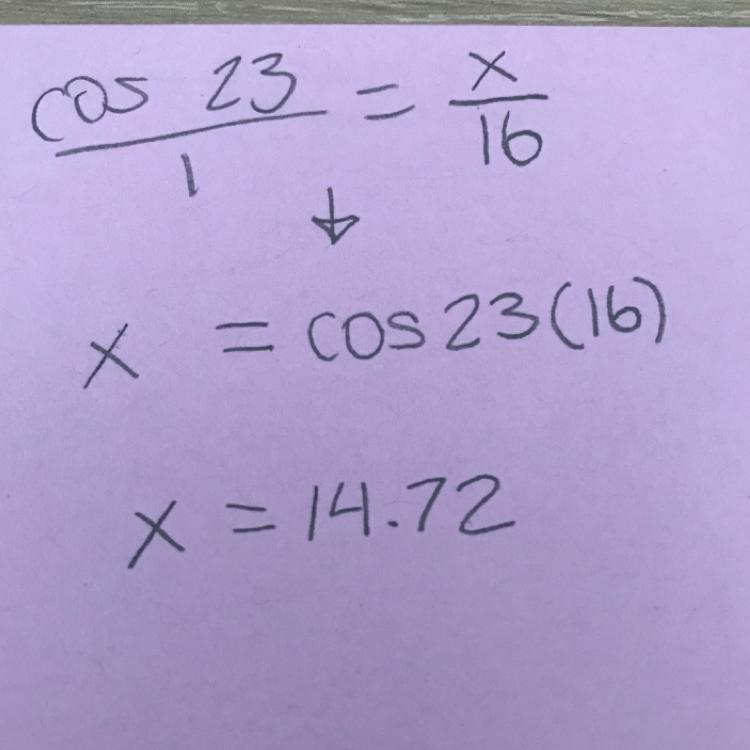 cos 23 / 1 = x / 16
↓
x = cos 23(16)
x = 14.72